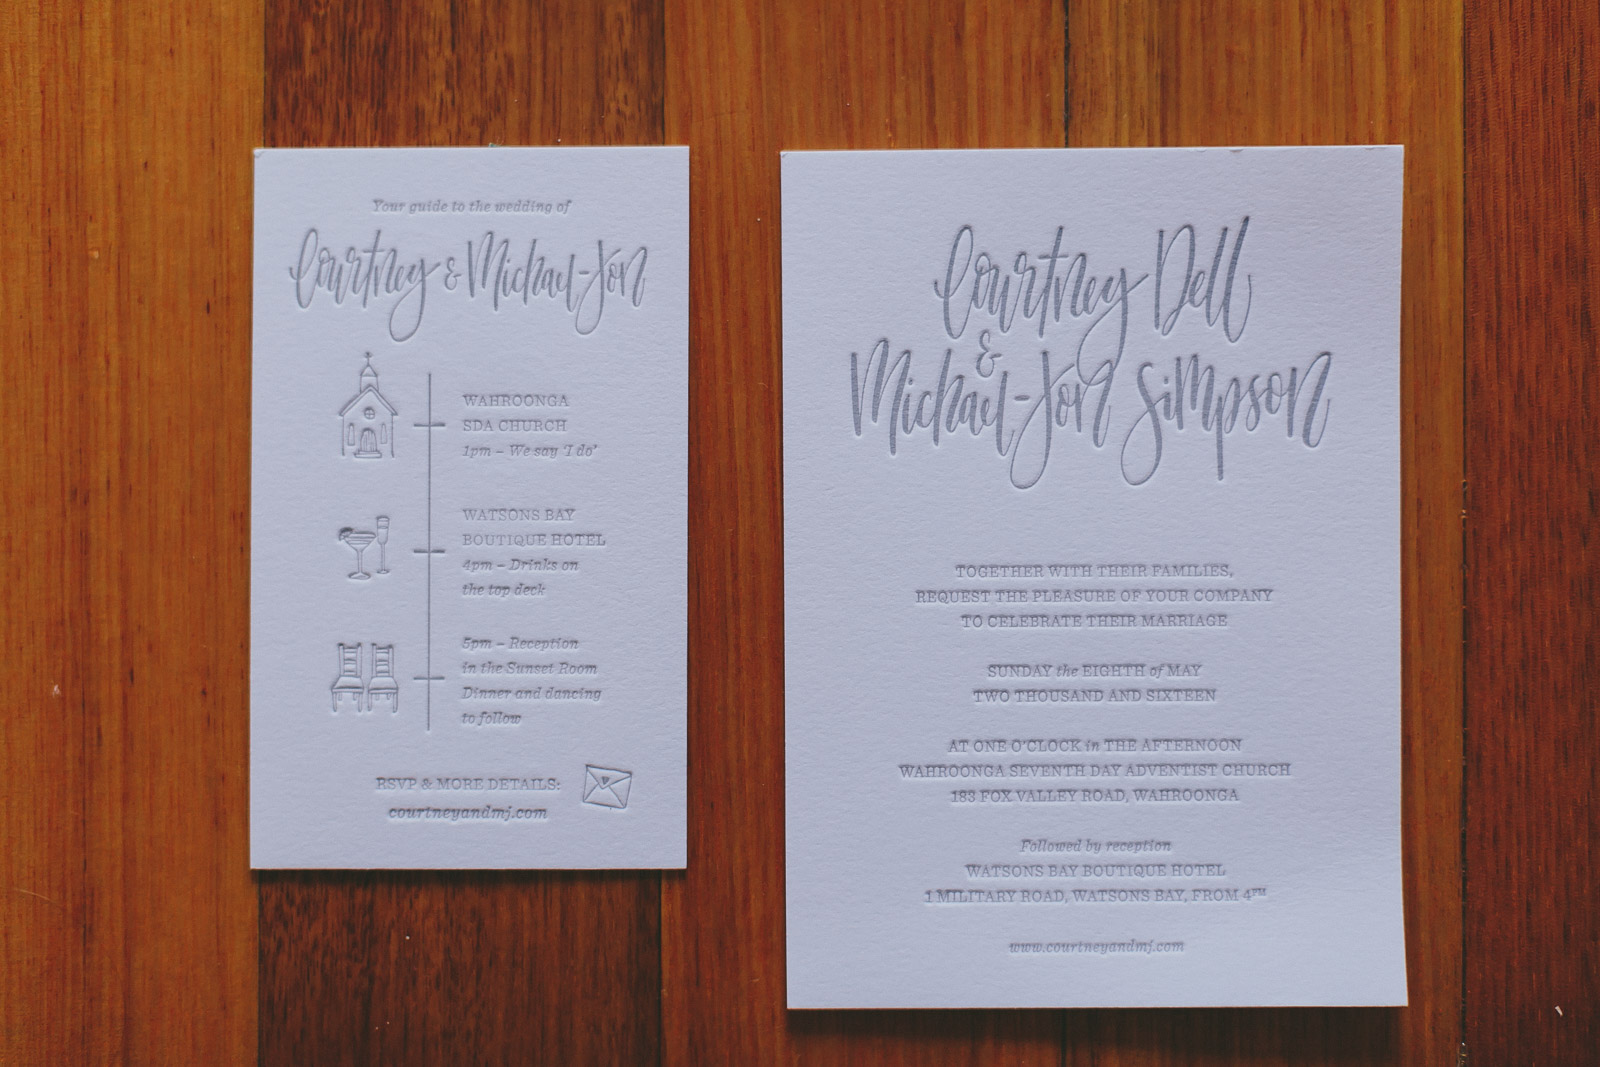 Your guide to the wedding of
Courtney & Michael-Jon
WAHROONGA
SDA CHURCH
1pm – We say 'I do'
WATSONS BAY
BOUTIQUE HOTEL
4pm – Drinks on
the top deck
5pm – Reception
in the Sunset Room
Dinner and dancing
to follow
RSVP & MORE DETAILS:
courtneyandmj.com
Courtney Dell
&
Michael-Jon Simpson
TOGETHER WITH THEIR FAMILIES,
REQUEST THE PLEASURE OF YOUR COMPANY
TO CELEBRATE THEIR MARRIAGE
SUNDAY the EIGHTH of MAY
TWO THOUSAND AND SIXTEEN
AT ONE O'CLOCK in THE AFTERNOON
WAHROONGA SEVENTH DAY ADVENTIST CHURCH
183 FOX VALLEY ROAD, WAHROONGA
Followed by reception
WATSONS BAY BOUTIQUE HOTEL
1 MILITARY ROAD, WATSONS BAY, FROM 4PM
www.courtneyandmj.com